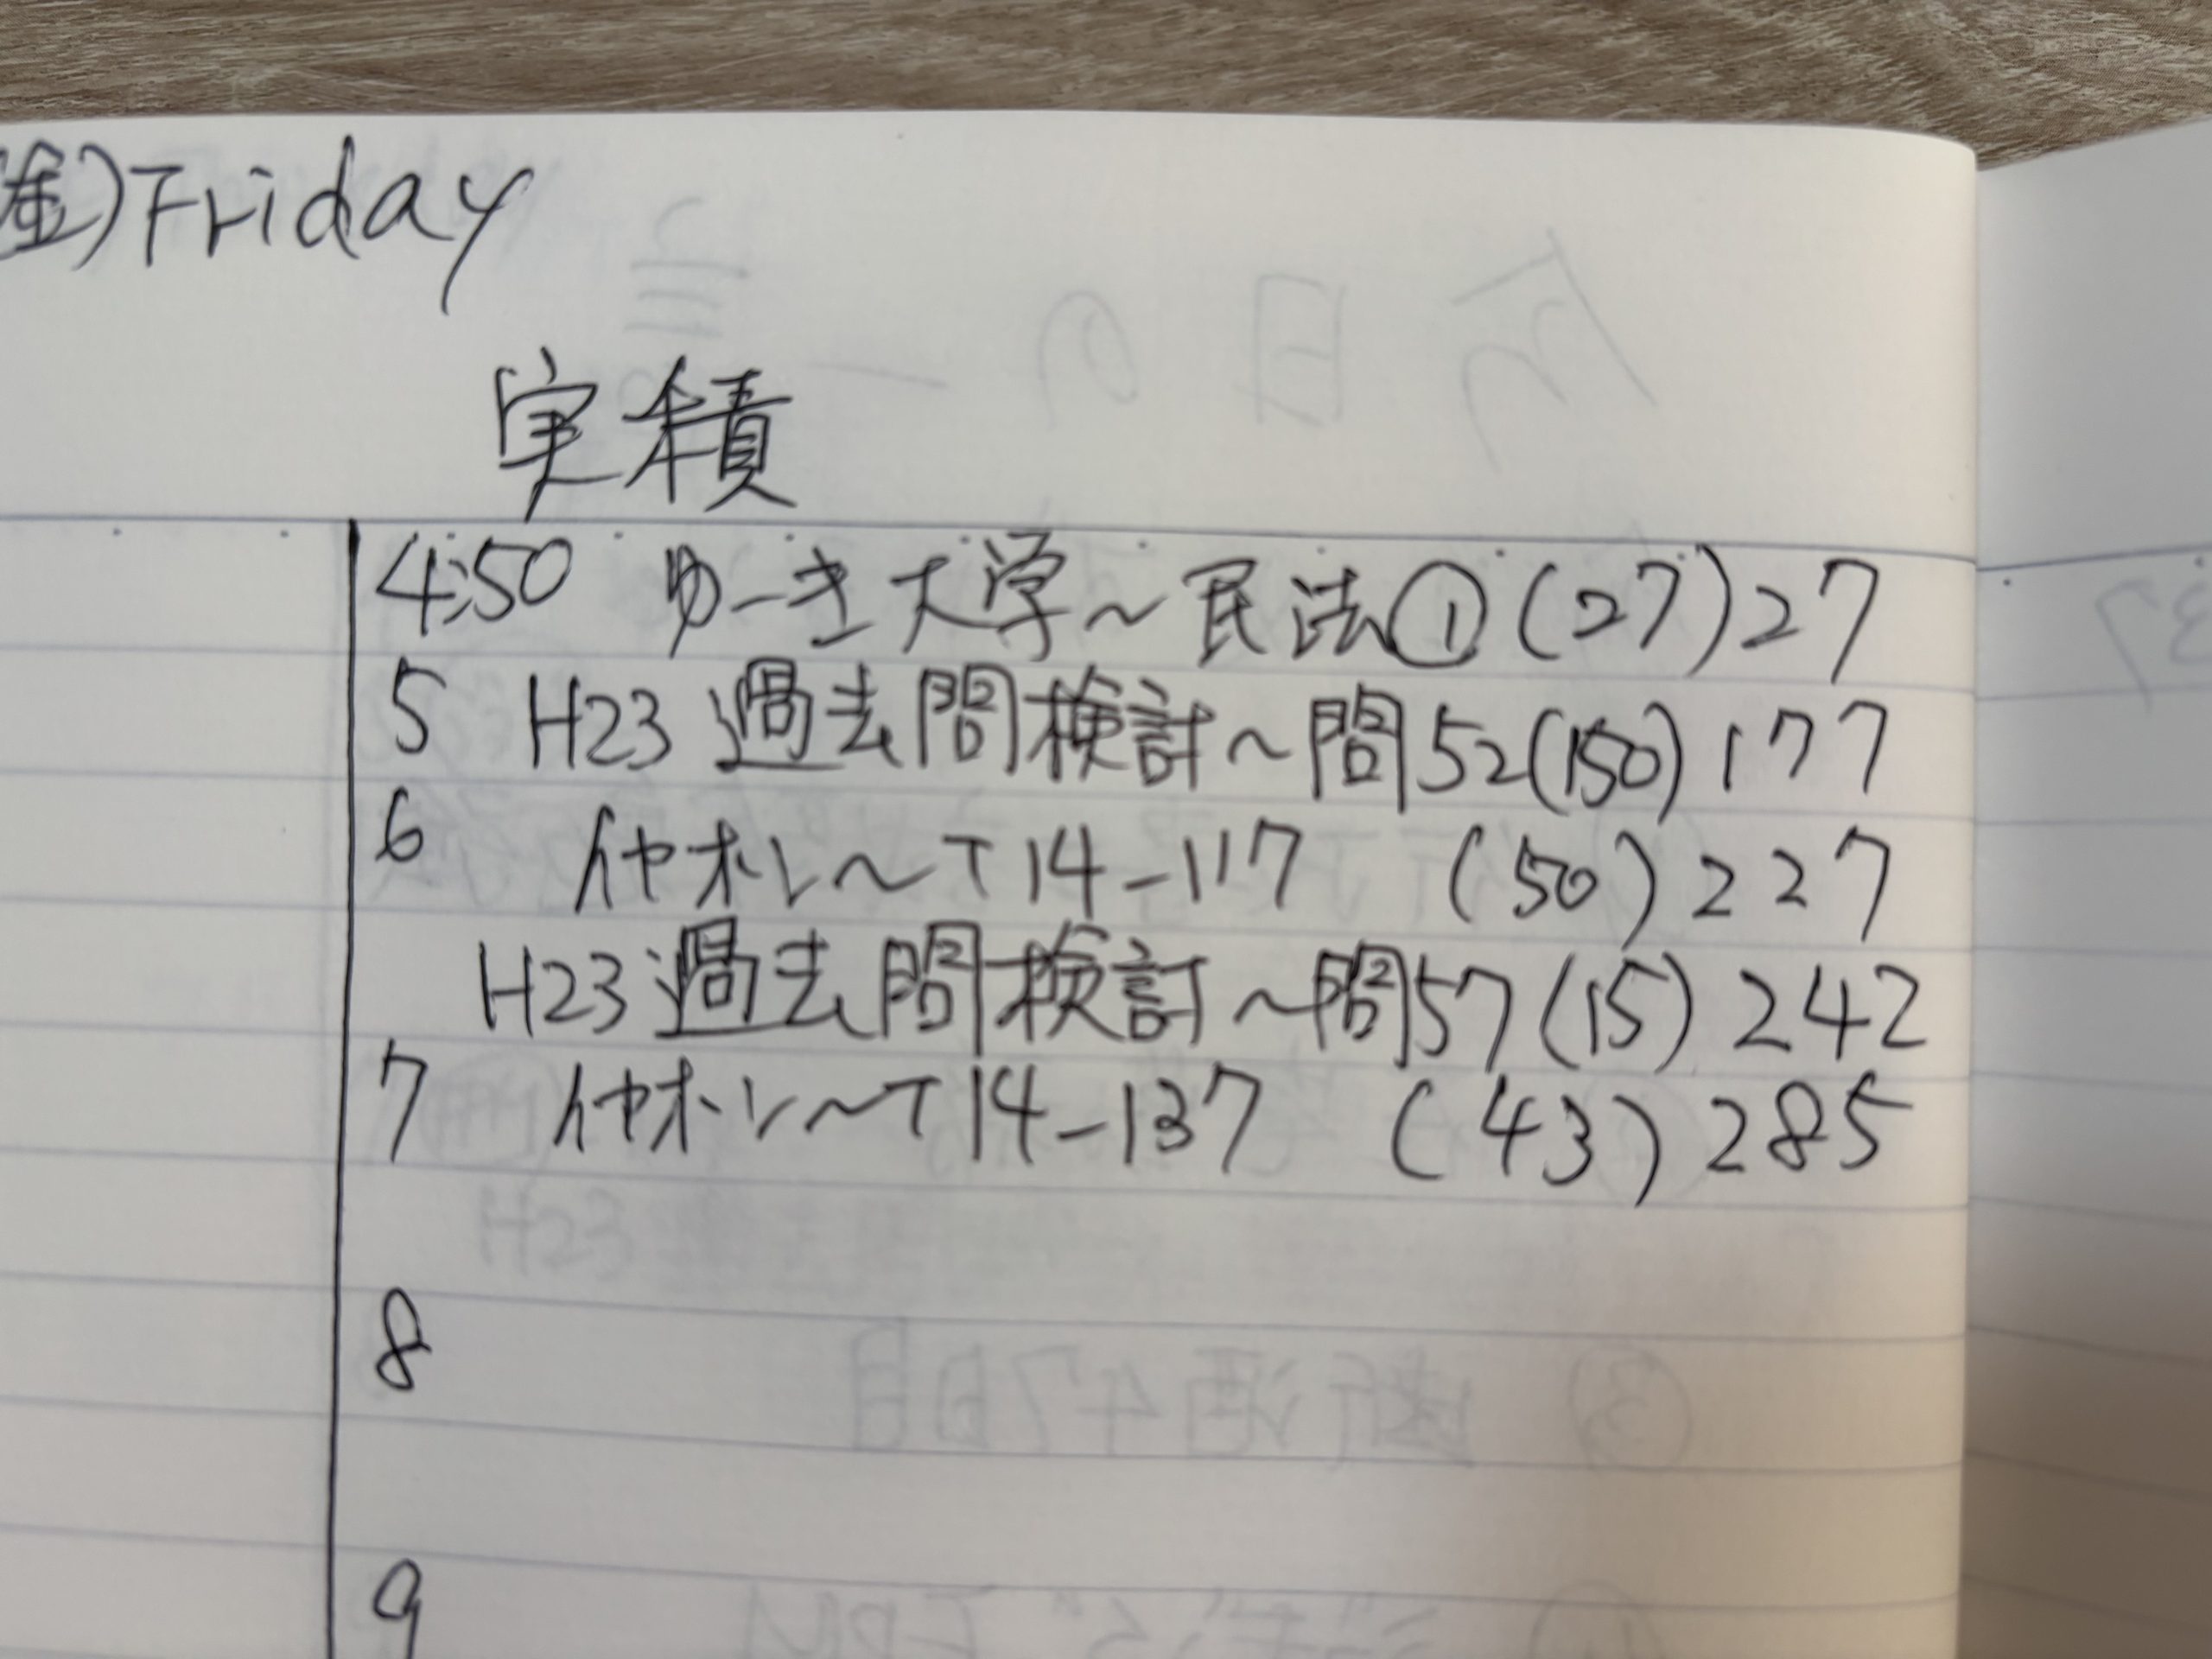 (金)Friday
実積
4:50 ゆーき大学〜民法① (27)27
5 H23 過去問検討〜問52(150)177
6 イヤホン〜T14-117 (50)227
H23過去問検討〜問57(15)242
7 イヤホン〜T14-137 (43)285
8
9